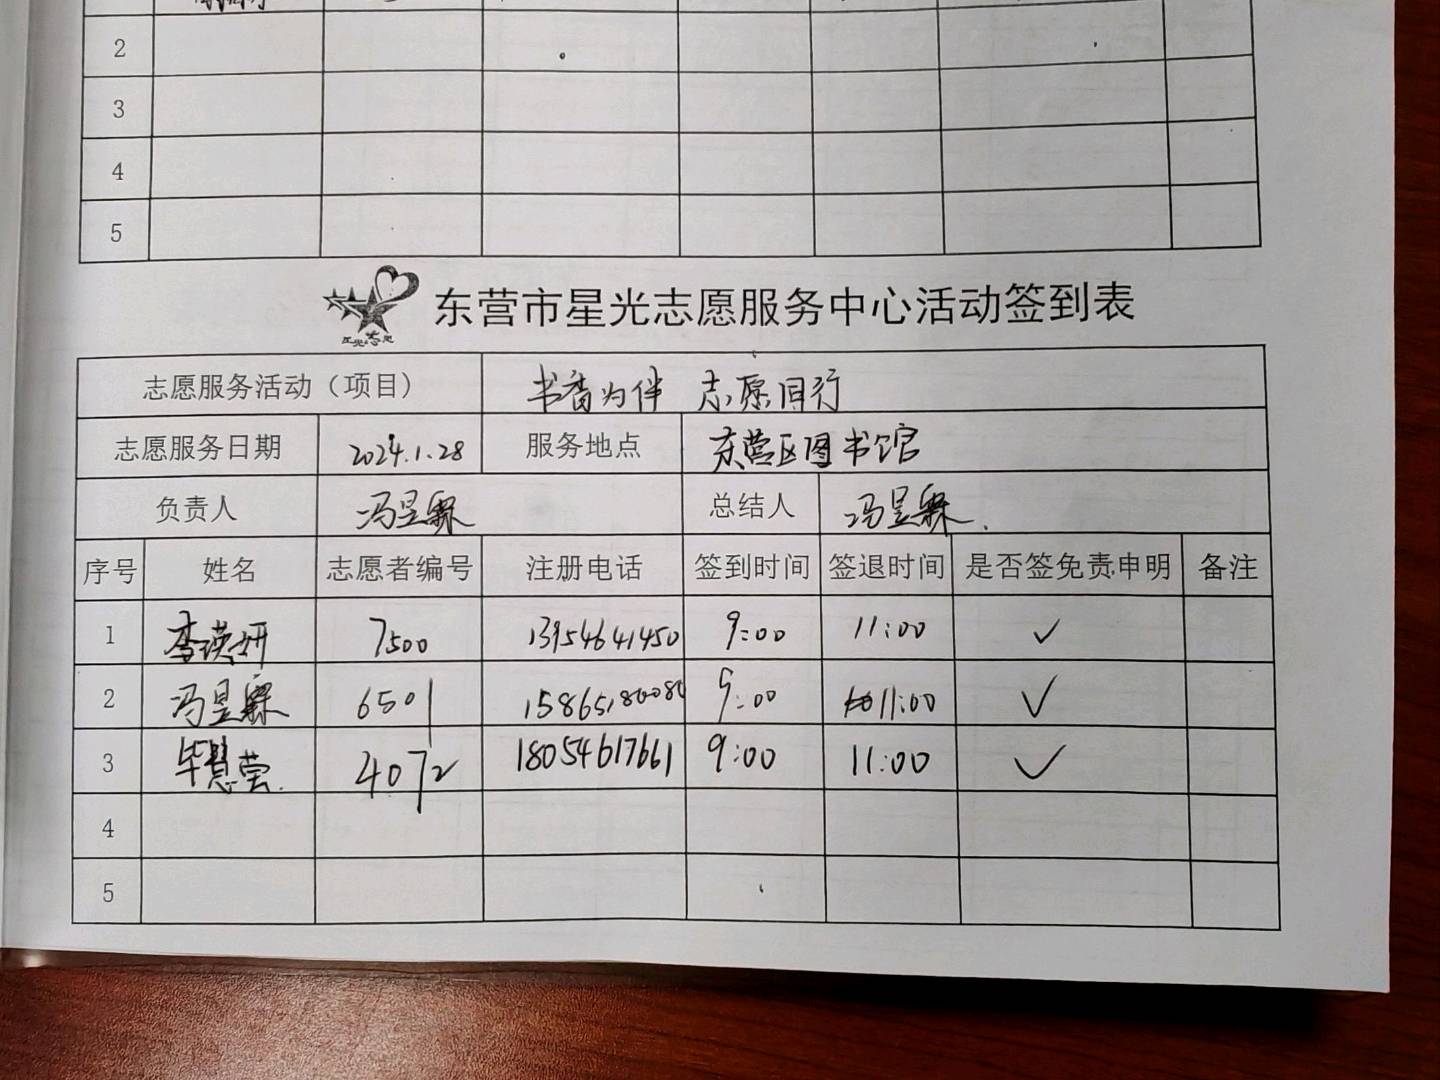 2
3
4
5
星光志愿
东营市星光志愿服务中心活动签到表
志愿服务活动（项目） 书香为伴 志愿同行
志愿服务日期 2024.1.28 服务地点 东营区图书馆
负责人 冯昱霖 总结人 冯昱霖.
序号 姓名 志愿者编号 注册电话 签到时间 签退时间 是否签免责申明 备注
1 李瑛妍 7500 13954641450 9:00 11:00 ✓
2 冯昱霖 6501 15865180080 9:00 11:00 ✓
3 毕慧莹. 4072 18054617661 9:00 11:00 ✓
4
5